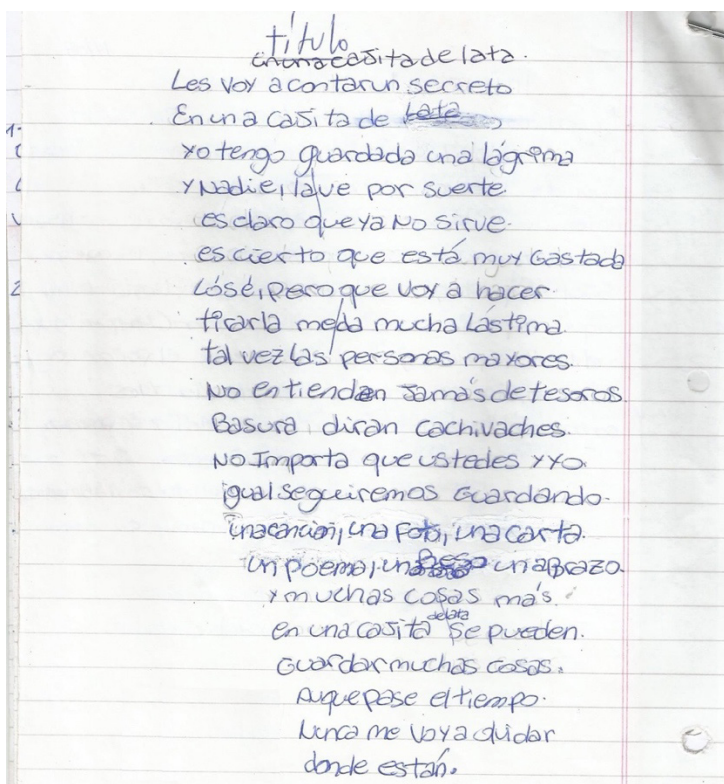 título
en una casita de lata.
Les voy a contar un secreto
En una casita de Lata
yo tengo guardada una lágrima
y Nadie, la ve por suerte.
es claro que ya No sirve.
es cierto que está muy Gastada
Lósé, pero que voy a hacer.
tirarla me da mucha Lástima.
tal vez las personas mayores.
No entienden Jamás de tesoros.
Basura, diran cachivaches.
No Importa que ustedes y yo.
igual seguiremos Guardando.
una canción, una foto, una carta.
un poema, un Beso un aBrazo.
y muchas cosas más.
en una casita de lata se pueden.
Guardar muchas cosas.
Auque pase el tiempo.
Nunca me voy a olvidar
donde están.